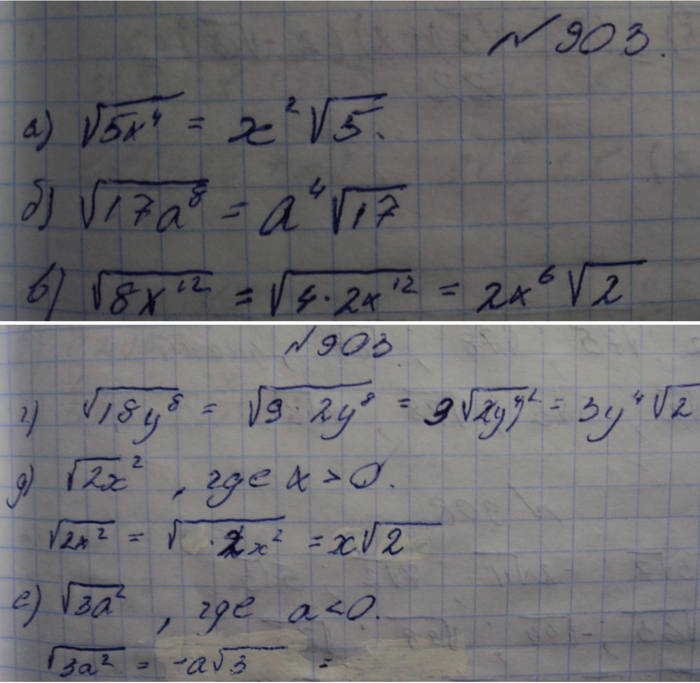 №903.
а) √5x⁴ = x²√5.
б) √17a⁸ = a⁴√17
в) √8x¹² = √4·2x¹² = 2x⁶√2
№903
г) √18y⁸ = √9·2y⁸ = 9√2y⁴)² = 3y⁴√2
д) √2x², где x > 0.
√2x² = √ ·2x² = x√2
е) √3a², где a<0.
√3a² = -a√3 =